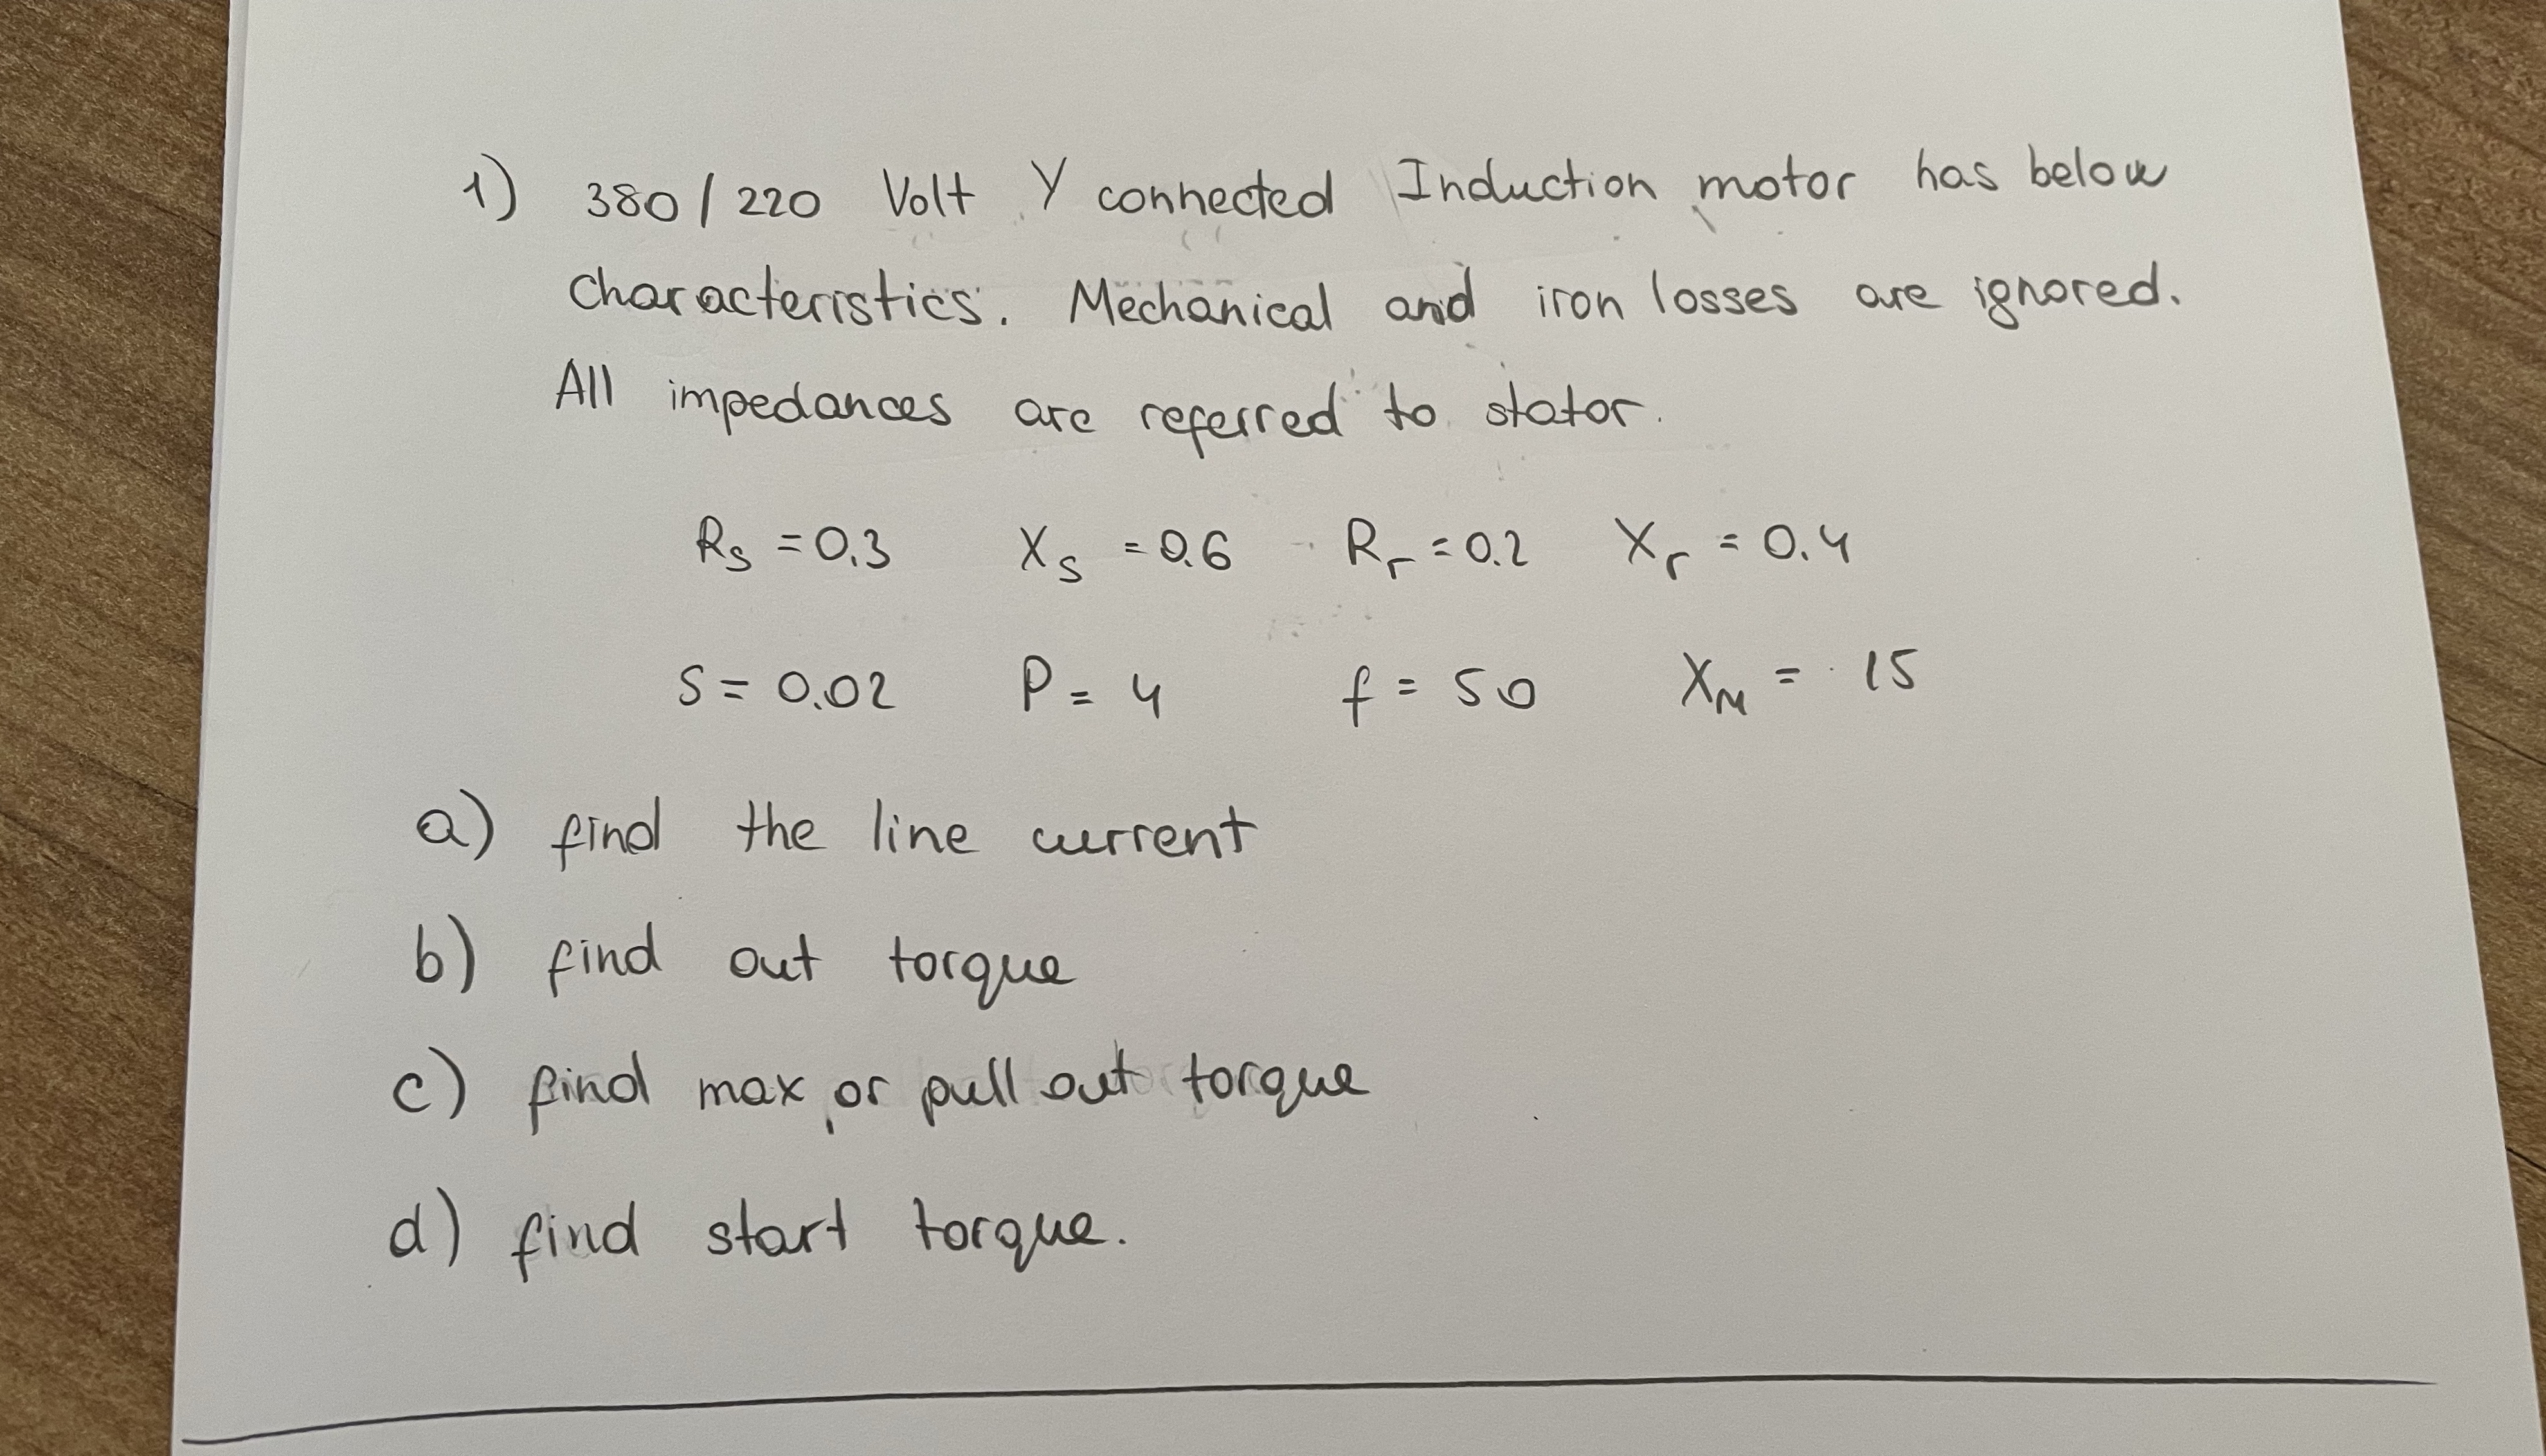 1) 380/220 Volt Y connected Induction motor has below
characteristics. Mechanical and iron losses are ignored.
All impedances are referred to stator.
Rs = 0.3 Xs = 0.6 Rr = 0.2 Xr = 0.4
S = 0.02 P = 4 f = 50 XM = 15
a) find the line current
b) find out torque
c) find max or pull out torque
d) find start torque.